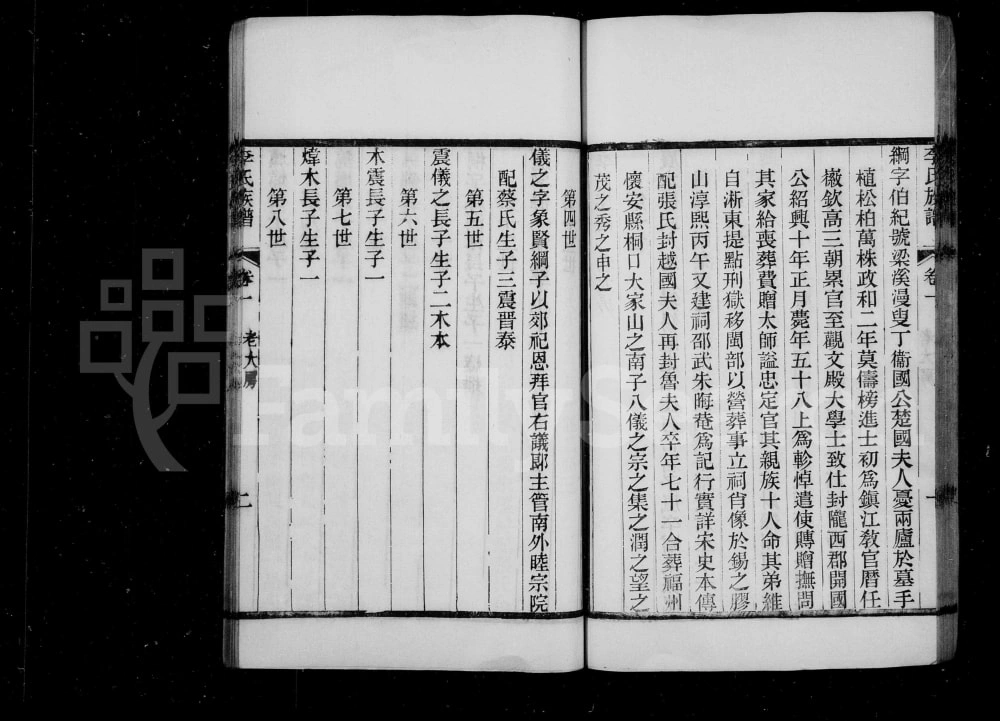 李氏族譜 卷一 一
綱字伯紀號梁溪漫叟丁衞國公楚國夫人憂兩廬於墓手
植松柏萬株政和二年莫儔榜進士初爲鎭江敎官厯任
徽欽高三朝累官至觀文殿大學士致仕封隴西郡開國
公紹興十年正月薨年五十八上爲軫悼遣使賻贈撫問
其家給喪葬費贈太師謚忠定官其親族十人命其弟維
自浙東提點刑獄移閩部以營葬事立祠肖像於錫之膠
山淳熙丙午又建祠邵武朱晦菴爲記行實詳宋史本傳
配張氏封越國夫人再封魯夫人卒年七十一合葬福州
懷安縣桐口大家山之南子八儀之宗之集之潤之望之
茂之秀之申之
第四世
儀之字象賢綱子以郊祀恩拜官右議郞主管南外睦宗院
配蔡氏生子三震晉泰
第五世
震儀之長子生子二木本
第六世
木震長子生子一
第七世
煒木長子生子一
第八世
李氏族譜 卷一 老大房 二
FamilyS